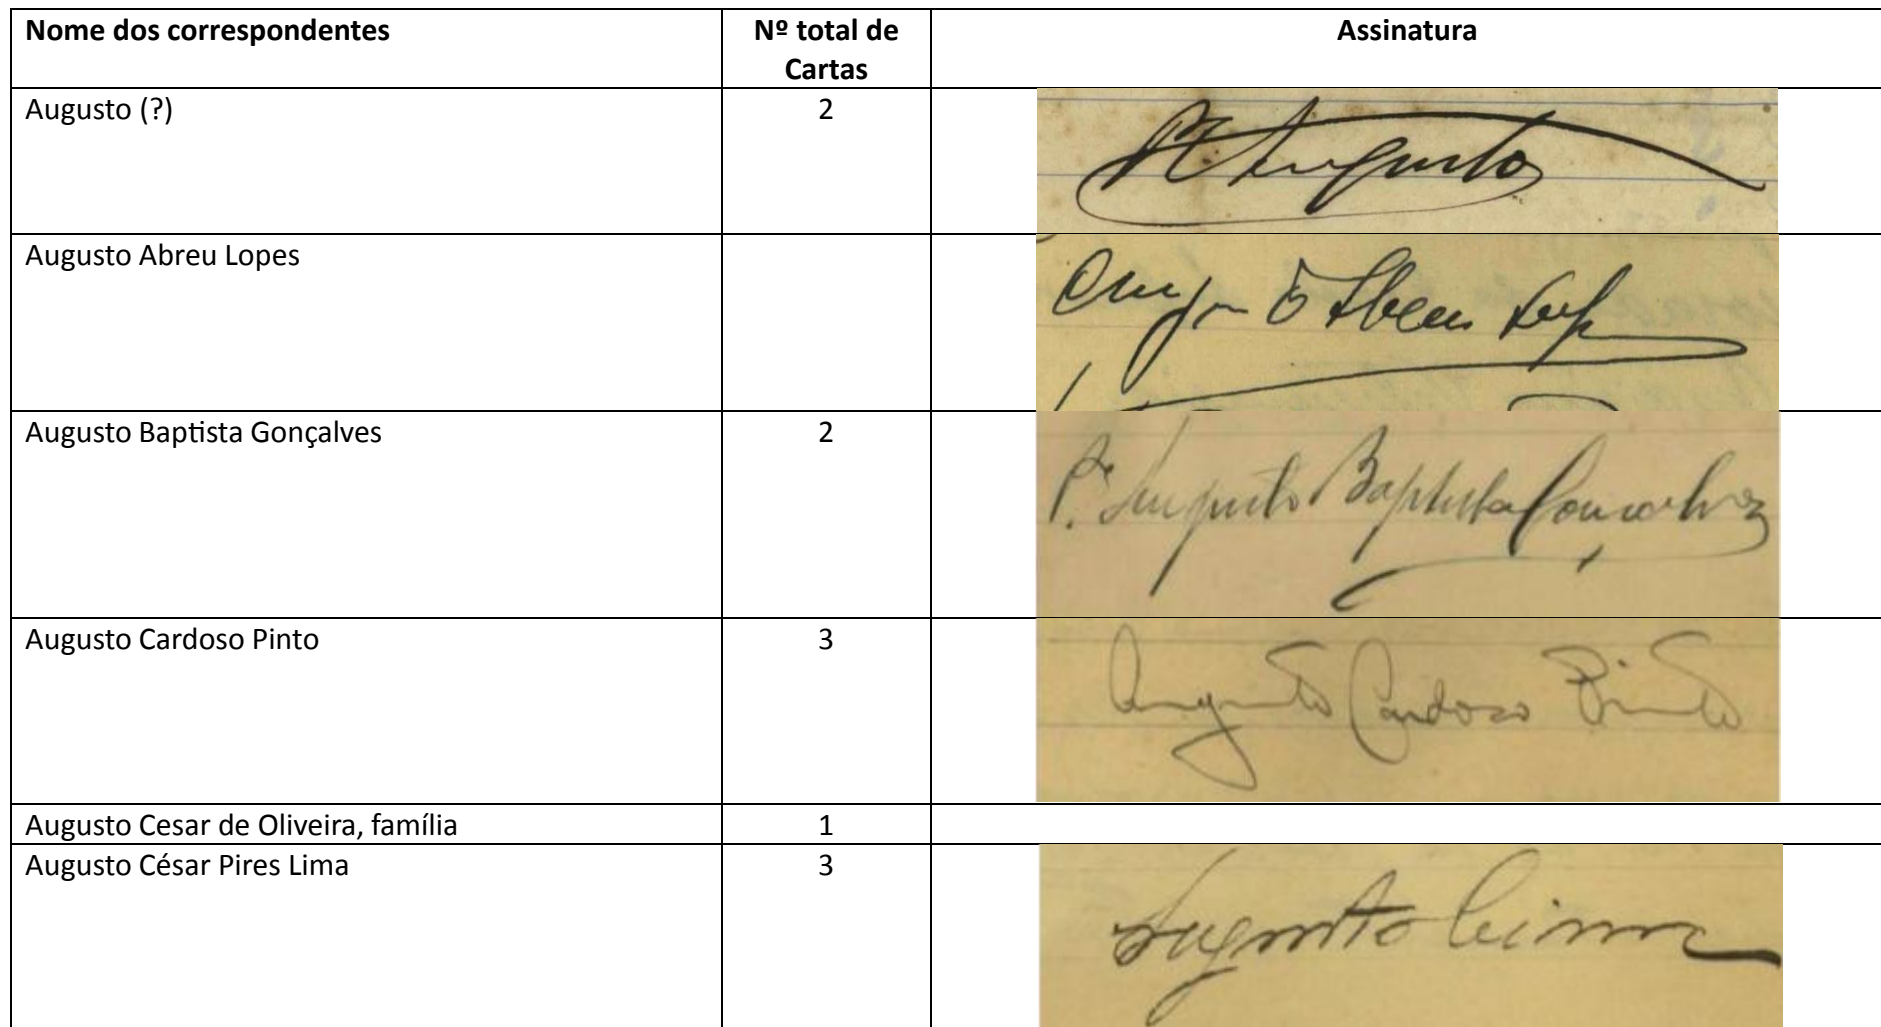 Nome dos correspondentes
Nº total de Cartas
Assinatura
Augusto (?)
2
Augusto
Augusto Abreu Lopes
Augusto Baptista Gonçalves
2
P.e Augusto Baptista Gonçalves
Augusto Cardoso Pinto
3
Augusto Cardoso Pinto
Augusto Cesar de Oliveira, família
1
Augusto César Pires Lima
3
Augusto Lima